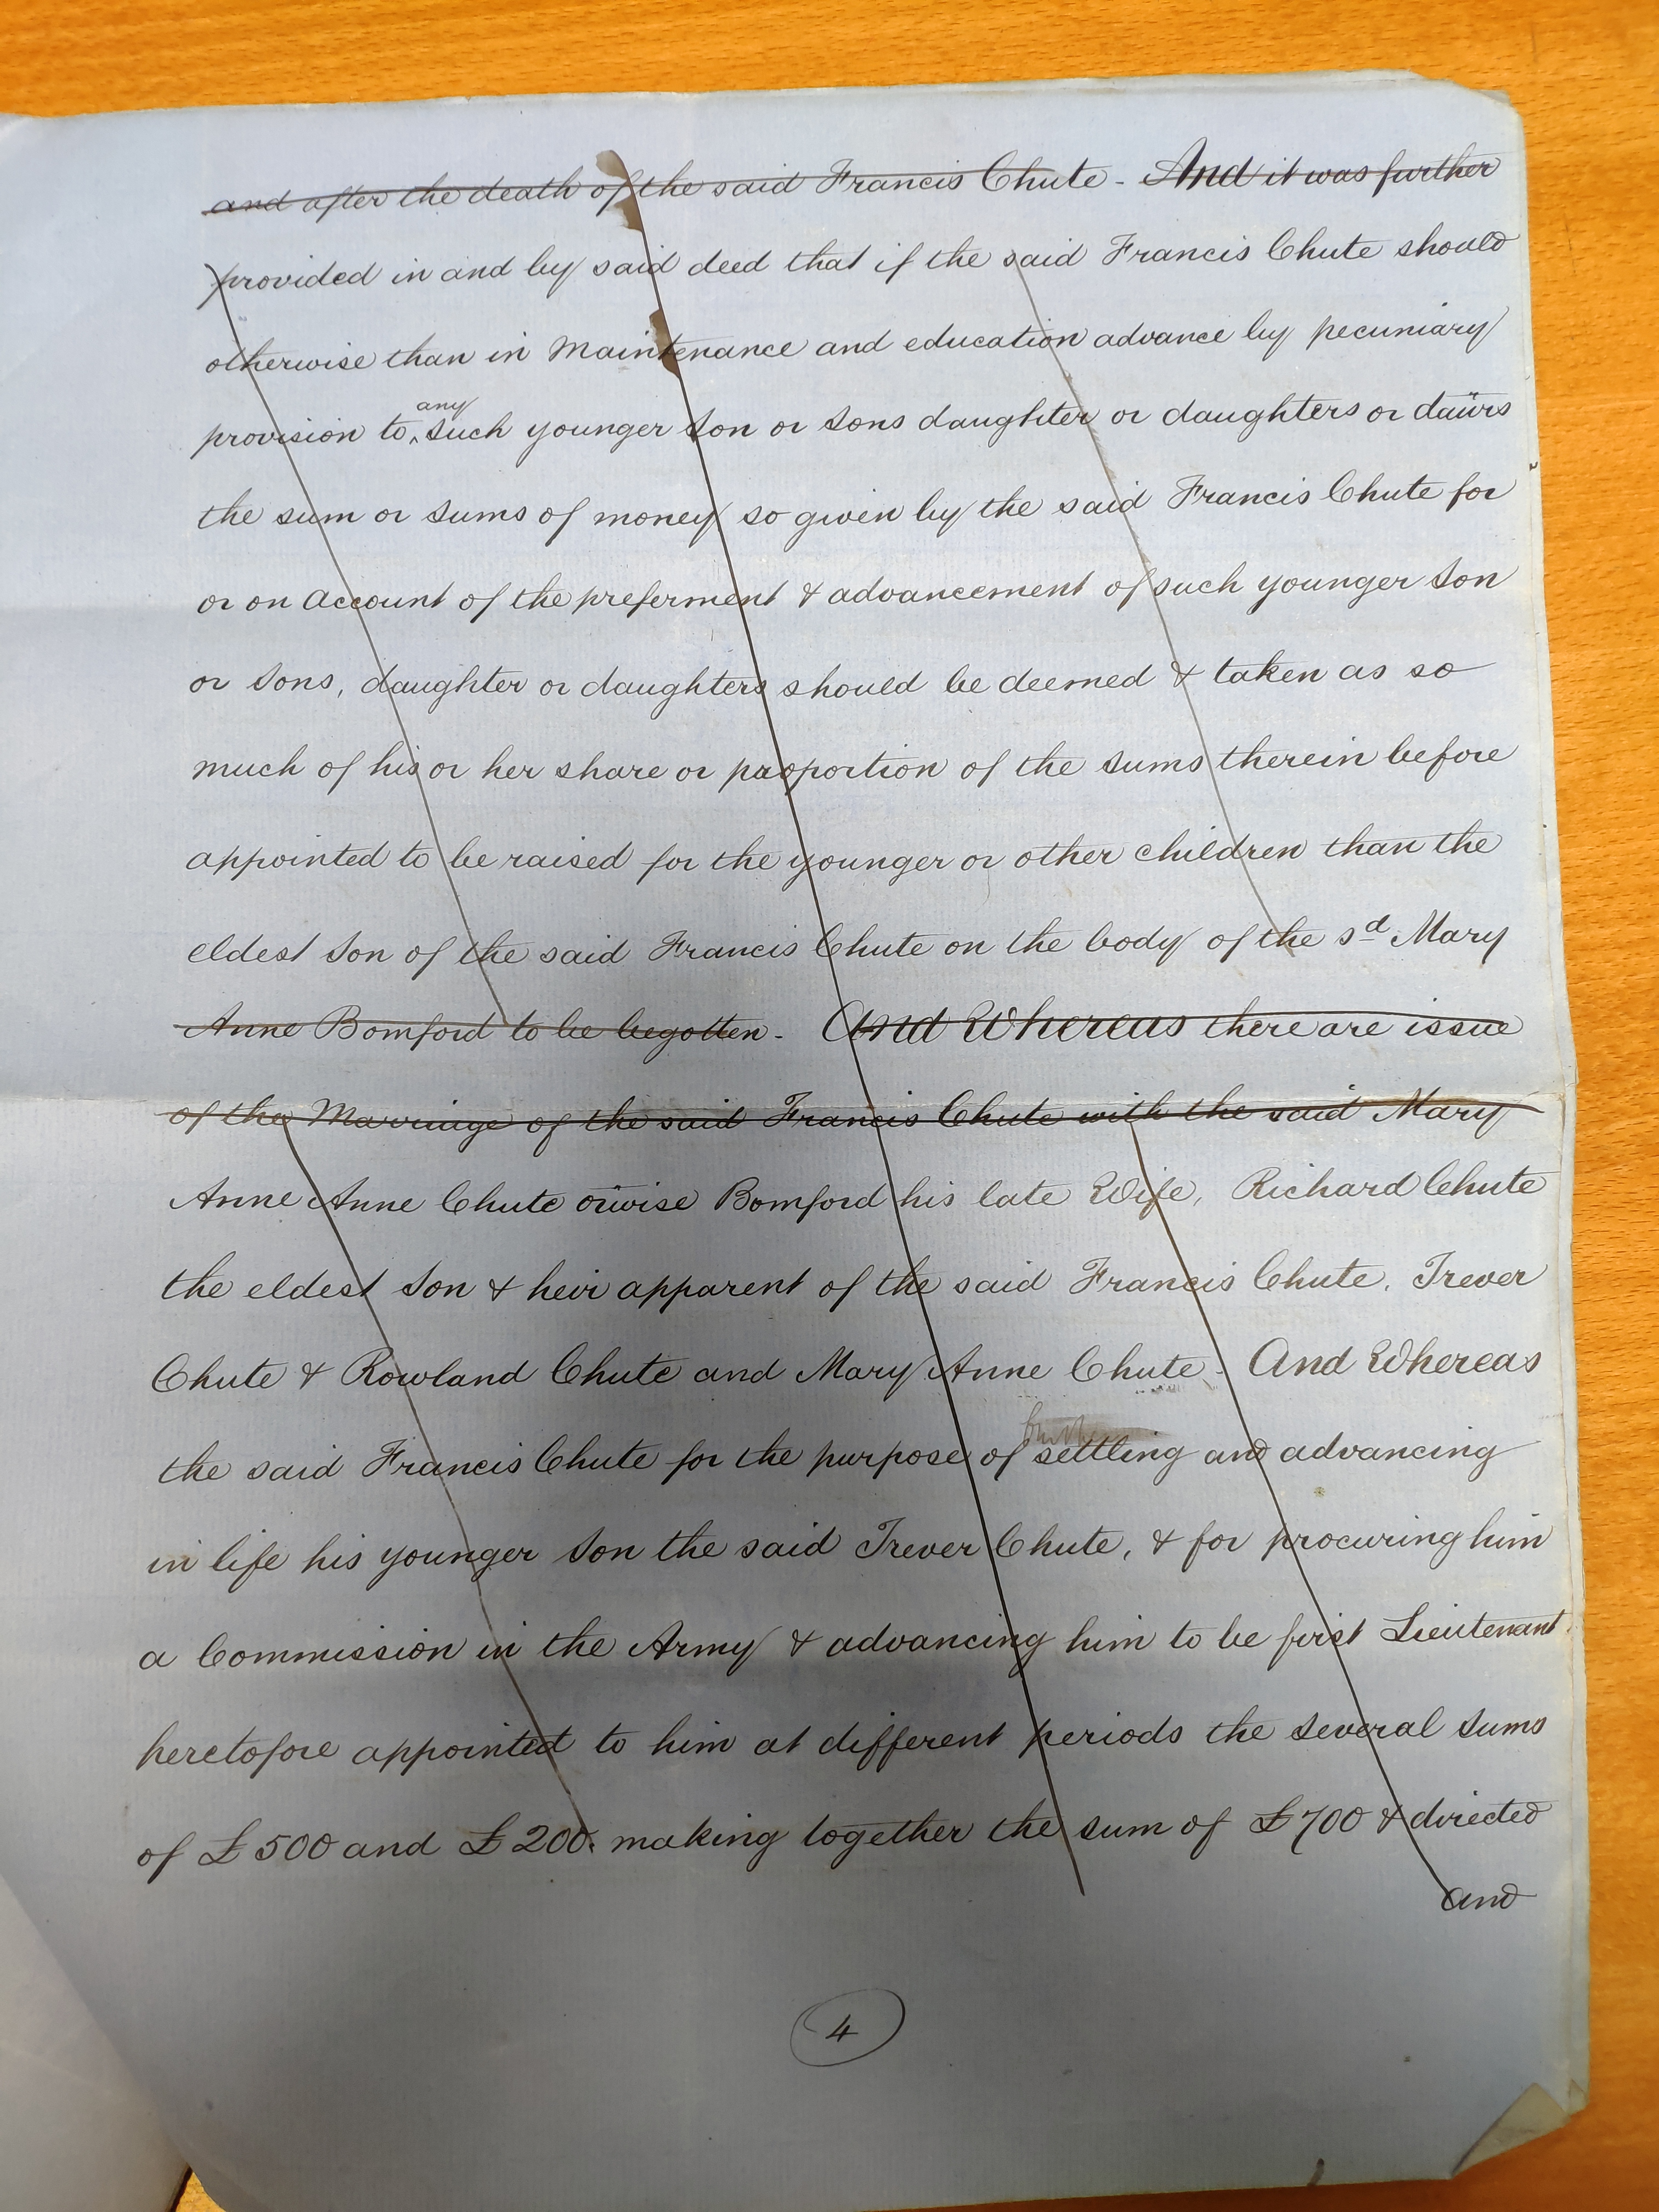 and after the death of the said Francis Chute - And it was further
provided in and by said deed that if the said Francis Chute should
otherwise than in Maintenance and education advance by pecuniary
any
provision to ^ such younger Son or Sons daughter or daughters or daūrs
the sum or sums of money so given by the said Francis Chute for
or on account of the preferment & advancement of such younger Son
or Sons, daughter or daughters should be deemed & taken as so
much of his or her share or proportion of the sums therein before
appointed to be raised for the younger or other children than the
eldest Son of the said Francis Chute on the body of the sd Mary
Anne Bomford to be begotten - And Whereas there are issue
of the Marriage of the said Francis Chute with the said Mary
Anne Anne Chute oūwise Bomford his late Wife, Richard Chute
the eldest Son & heir apparent of the said Francis Chute, Trever
Chute & Rowland Chute and Mary Anne Chute - And Whereas
the said Francis Chute for the purpose of settling and advancing
in life his younger Son the said Trever Chute, & for procuring him
a Commission in the Army & advancing him to be first Lieutenant
heretofore appointed to him at different periods the several Sums
of £500 and £200. making together the sum of £700 & directed
and
4